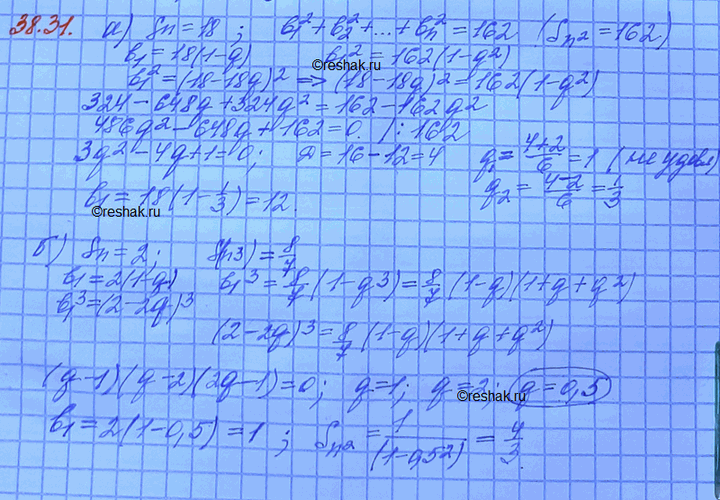 38.31. а) Sn = 18 ; b₁² + b₂² + ... + bn² = 162 (Sn² = 162)
b₁ = 18(1-q) b₁² = 162(1-q²)
©reshak.ru
b₁² = (18-18q)² => (18-18q)² = 162(1-q²)
324 - 648q + 324q² = 162 - 162q²
486q² - 648q + 162 = 0 /: 162
3q² - 4q + 1 = 0; D = 16 - 12 = 4 q₁ = (4+2)/6 = 1 (не удовл)
q₂ = (4-2)/6 = 1/3
b₁ = 18(1 - 1/3) = 12.
©reshak.ru
б) Sn = 2; S(n³) = 8/7
b₁ = 2(1-q) b₁³ = 8/7 (1-q³) = 8/7 (1-q)(1+q+q²)
b₁³ = (2-2q)³
(2-2q)³ = 8/7 (1-q)(1+q+q²)
(q-1)(q-2)(2q-1) = 0; q = 1; q = 2; q = 0,5
©reshak.ru
b₁ = 2(1-0,5) = 1 ; Sn² = 1/(1-0,5²) = 4/3.